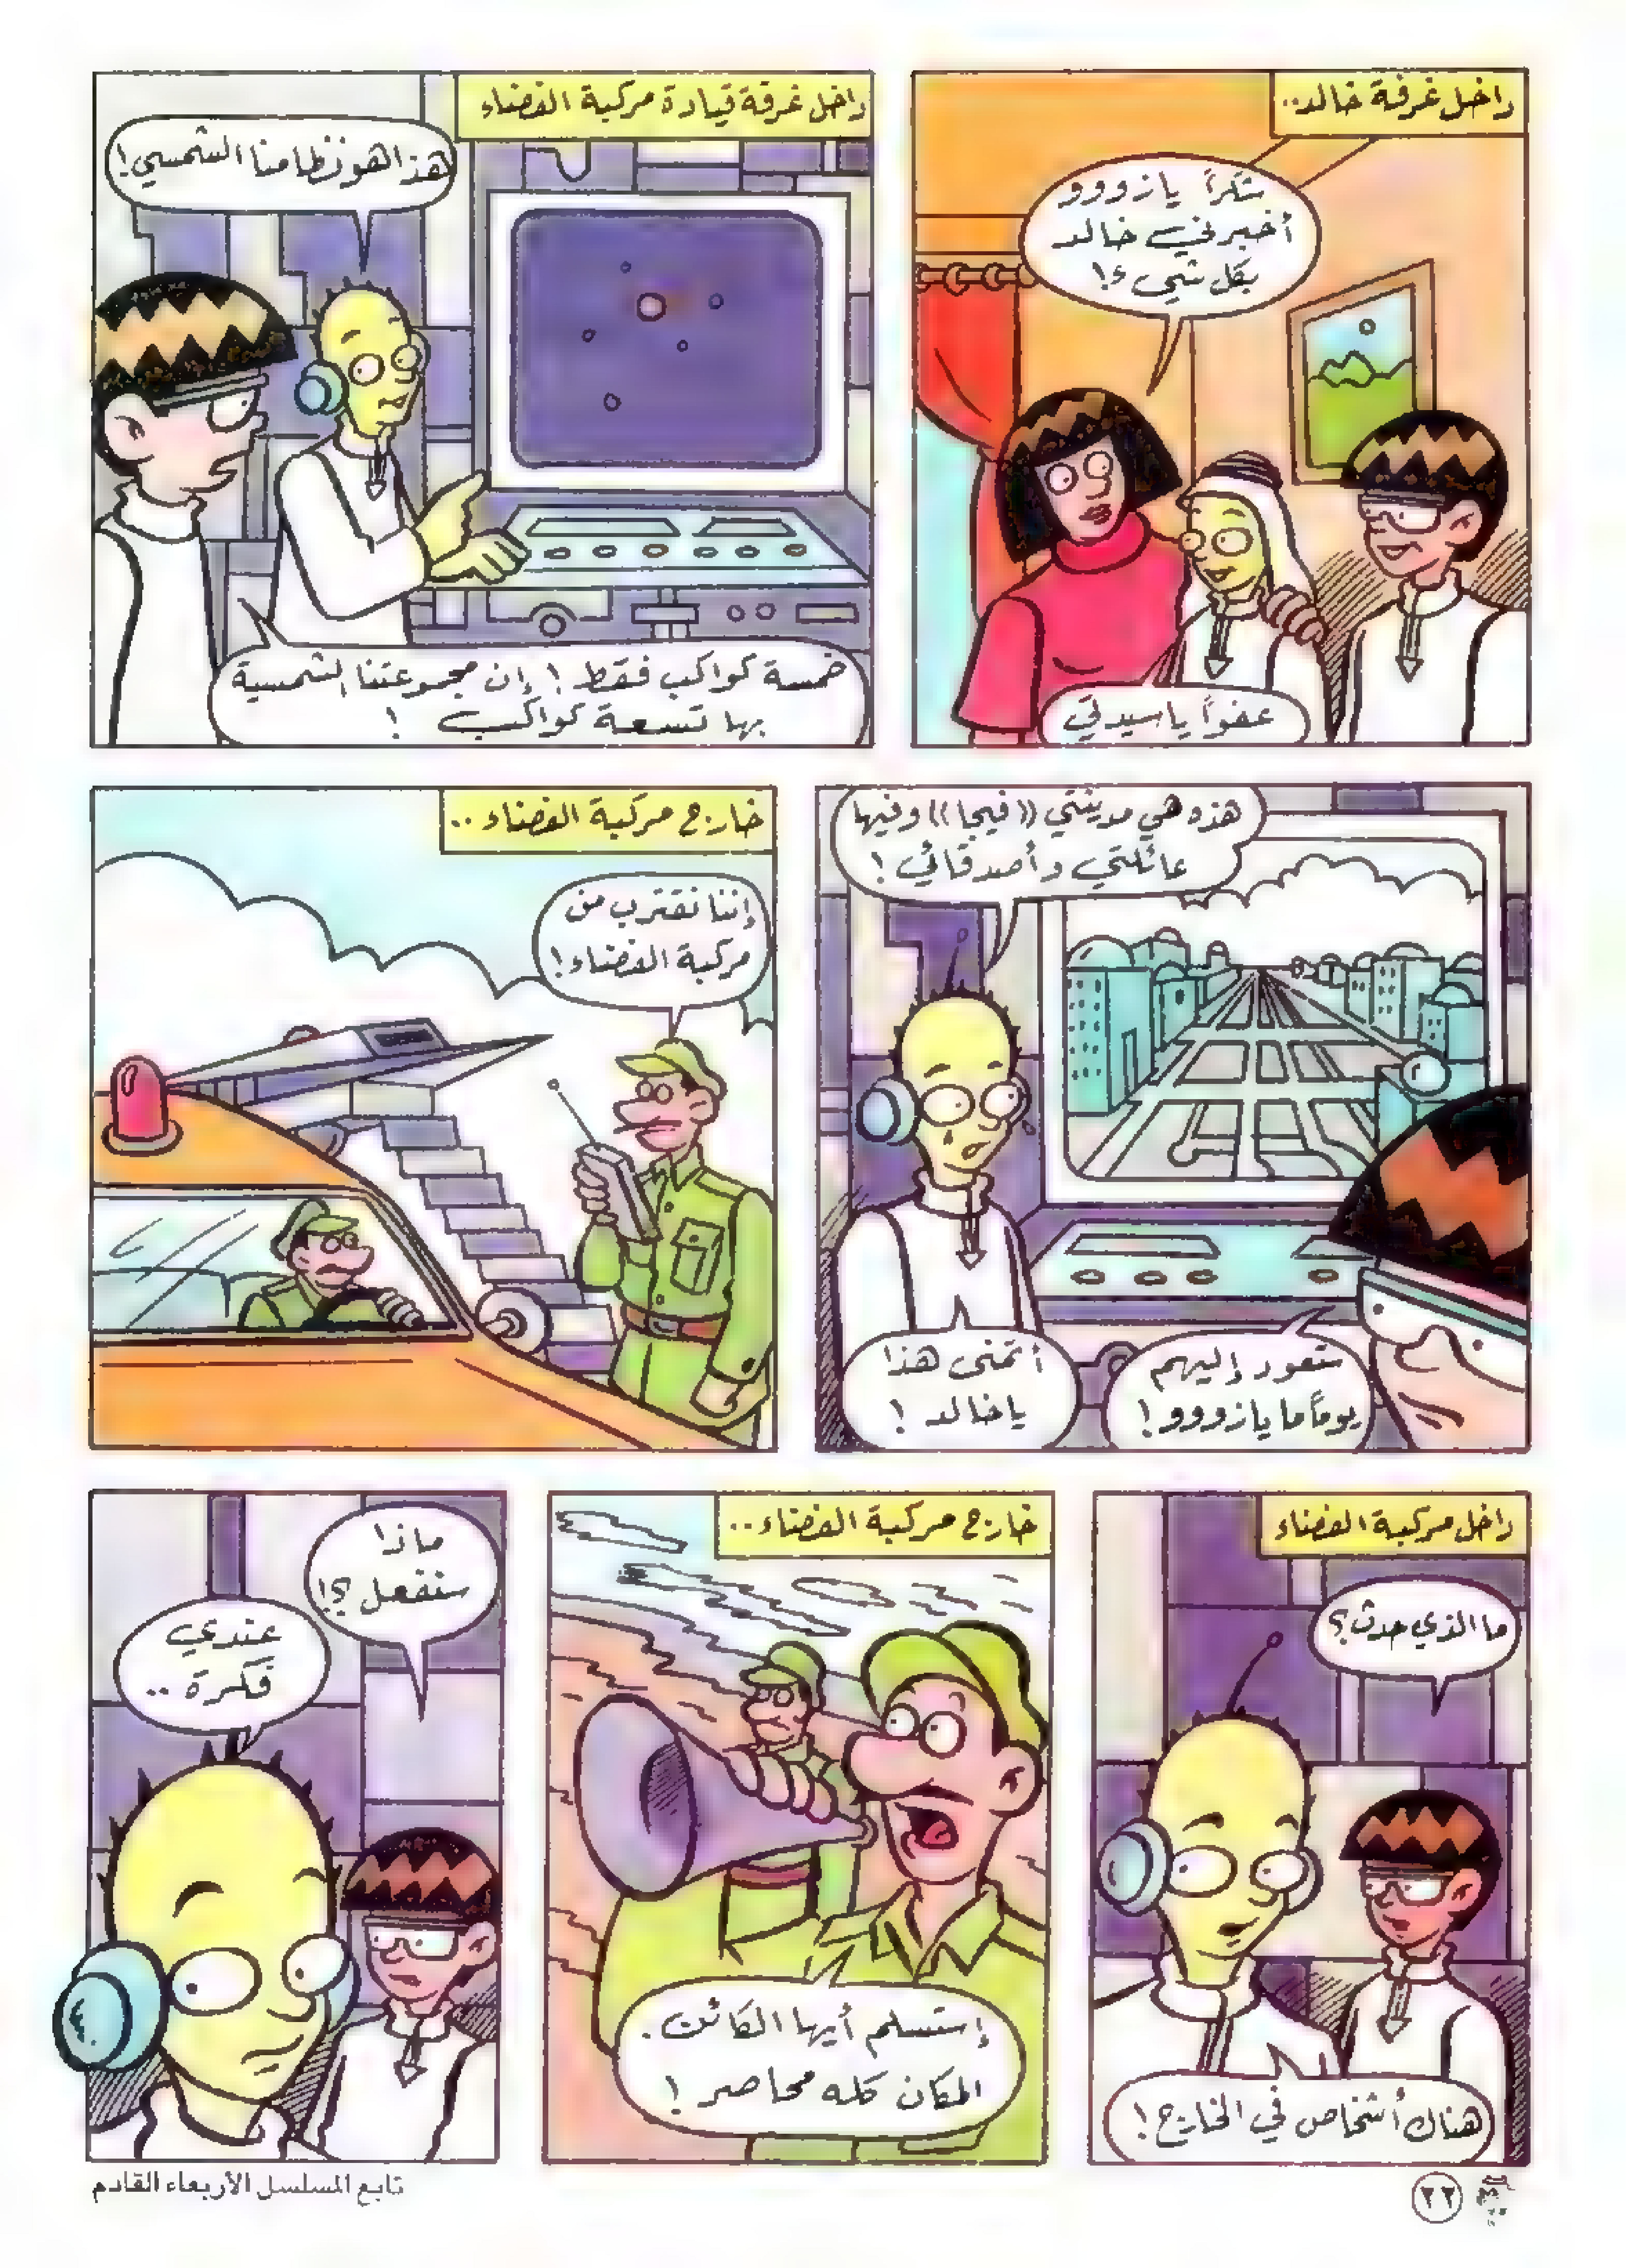 داخل غرفة خالد..
شكراً يا زووو
أخبرني خالد
بكل شيء!
عفواً يا سيدتي
داخل غرفة قيادة مركبة الفضاء
هذا هو نظامنا الشمسي!
خمسة كواكب فقط! إن مجموعتنا الشمسية
بها تسعة كواكب !
هذه هي مدينتي ((فيجا)) وفيها
عائلتي وأصدقائي!
ستعود إليهم
يوماً ما يا زووو!
أتمنى هذا
يا خالد !
خارج مركبة الفضاء ..
إننا نقترب من
مركبة الفضاء!
داخل مركبة الفضاء
ما الذي حدث؟
هناك أشخاص في الخارج!
خارج مركبة الفضاء..
إستسلم أيها الكائن.
المكان كله محاصر !
ماذا
سنفعل؟!
عندي
فكرة ..
تابع المسلسل الأربعاء القادم
٢٢